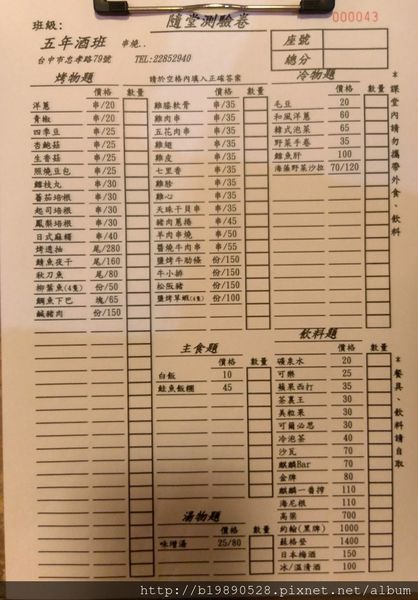 班級:
隨堂測驗卷
000043
五年酒班 串燒..
台中市忠孝路79號 TEL:22852940
座號
總分
烤物題 請於空格內填入正確答案 冷物題
價格 數量
洋蔥 串/20
青椒 串/20
四季豆 串/25
杏鮑菇 串/25
生香菇 串/25
照燒豆包 串/25
鱈枝丸 串/30
蕃茄培根 串/30
起司培根 串/30
鳳梨培根 串/30
日式麻糬 串/40
烤透抽 尾/280
鯖魚夜干 尾/160
秋刀魚 尾/80
柳葉魚(4隻) 份/50
鯛魚下巴 塊/65
鹹豬肉 份/150
價格 數量
雞膝軟骨 串/35
雞肉串 串/35
五花肉串 串/35
雞翅 串/35
雞皮 串/35
七里香 串/35
雞胗 串/35
雞心 串/35
天珠干貝串 串/35
豬肉蔥捲 串/45
羊肉串燒 串/50
醬燒牛肉串 串/55
鹽烤牛肋條 份/150
牛小排 份/150
松阪豬 份/150
鹽烤草蝦(4隻) 份/100
價格 數量
毛豆 20
和風洋蔥 60
韓式泡菜 65
野菜手卷 35
鱈魚肝 100
海藻野菜沙拉 70/120
*課堂內請勿攜帶外食、飲料
主食題
價格 數量
白飯 10
鮭魚飯糰 45
湯物題
價格 數量
味增湯 25/80
飲料題
價格 數量
礦泉水 20
可樂 25
蘋果西打 35
茶裏王 30
美粒果 30
可爾必思 30
冷泡茶 40
沙瓦 70
麒麟Bar 70
金牌 80
麒麟一番搾 110
海尼根 110
高粱 700
約翰(黑牌) 1000
蘇格登 1400
日本梅酒 150
冰/溫清酒 100
*餐具、飲料請自取
http://b19890528.pixnet.net/album